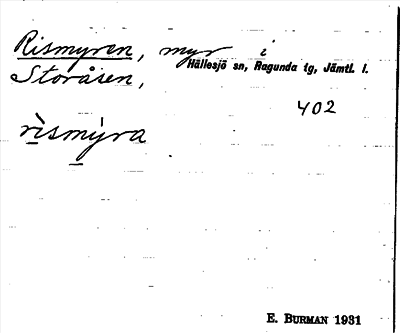 Rismyren, myr i
Hällesjö sn, Ragunda tg, Jämtl. l.
Storåsen,
402
rìsmýra
E. BURMAN 1931